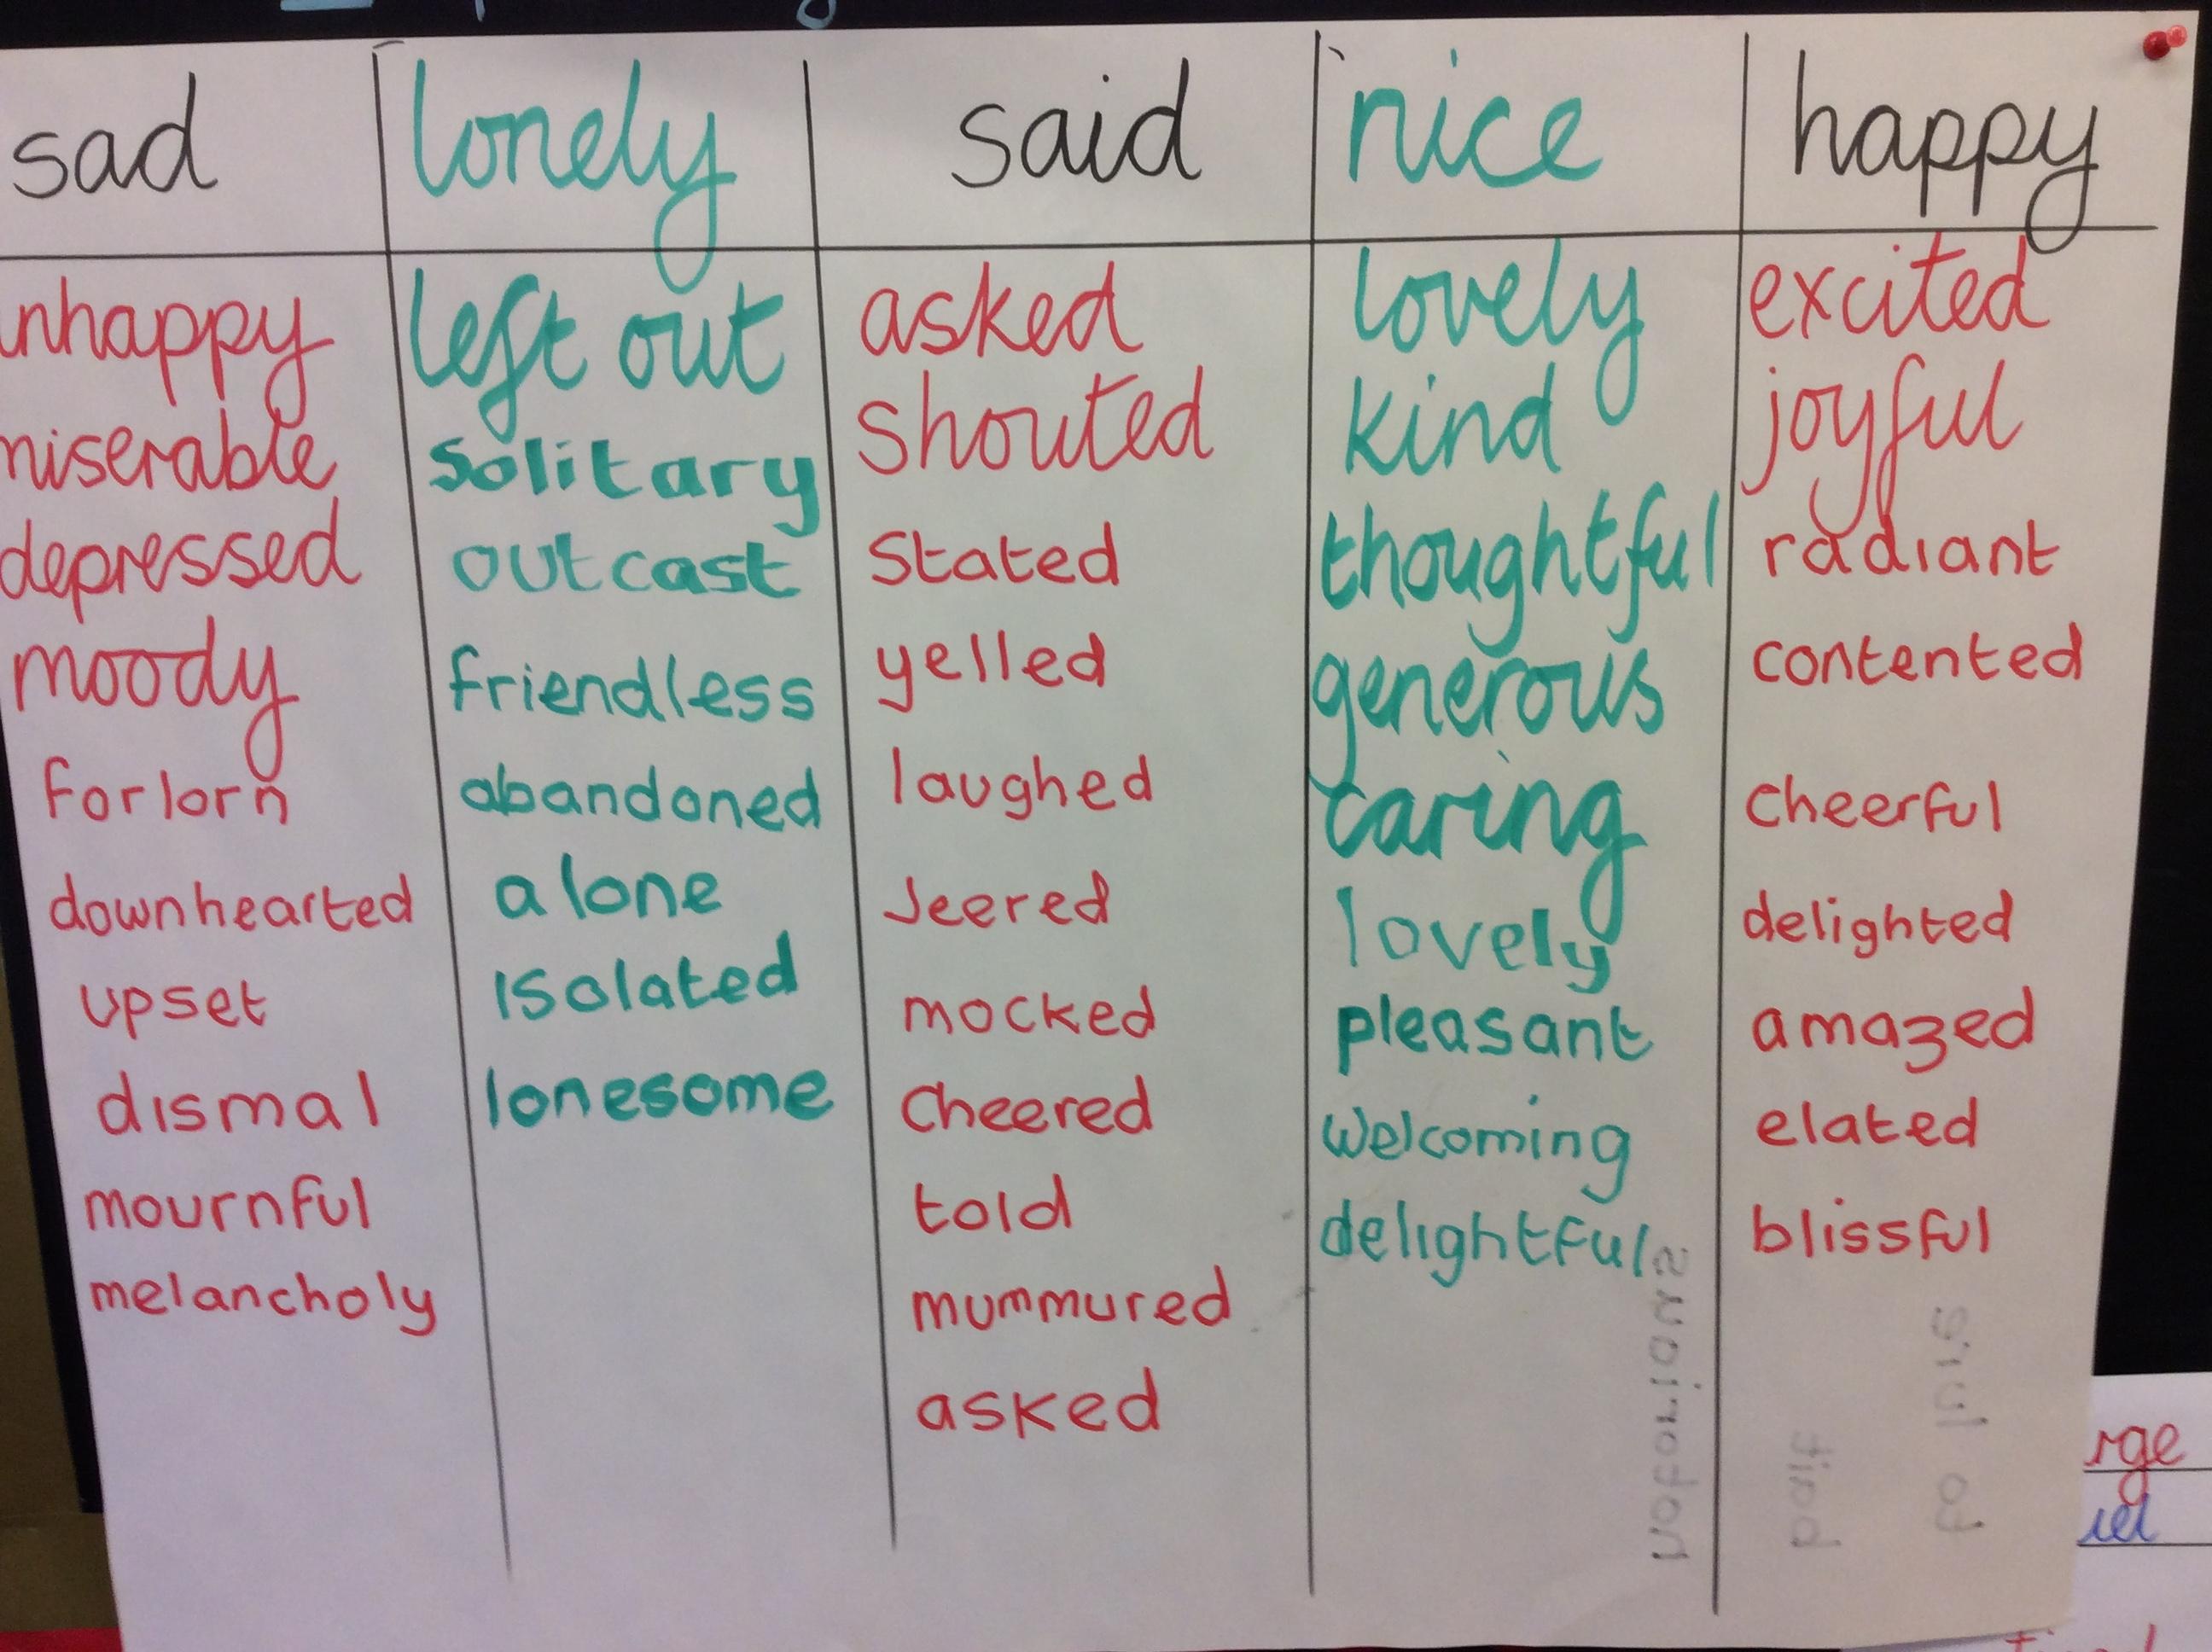 sad lonely said nice happy
nhappy left out asked lovely excited
miserable solitary shouted kind joyful
depressed outcast stated thoughtful radiant
moody friendless yelled generous contented
forlorn abandoned laughed caring cheerful
downhearted alone Jeered lovely delighted
upset Isolated mocked pleasant amazed
dismal lonesome cheered welcoming elated
mournful told delightful blissful
melancholy mummured
asked
rge